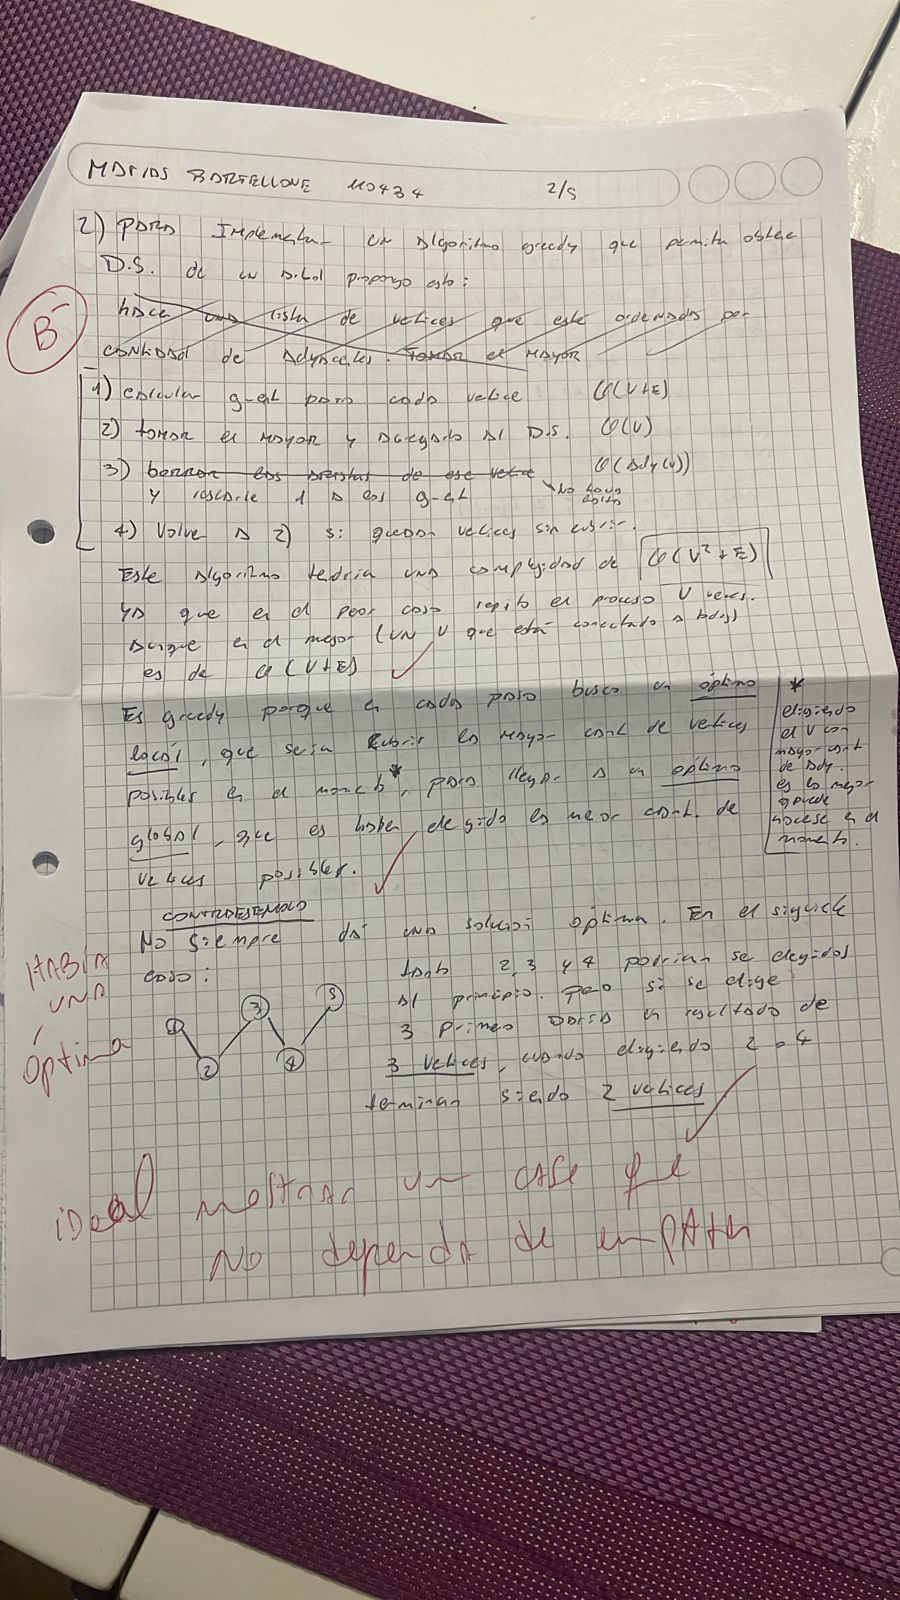 MATIAS BARTELLONE 110434 2/5
2) PARA Implementar un Algoritmo greedy que permita obtener
D.S. de un árbol propongo esto:
hacer una lista de vertices que esté ordenados por
cantidad de Adyacentes. Tomar el MAYOR
1) calcular grad para cada vertice O(V+E)
2) tomar el mayor y agregado al D.S. O(V)
3) borrar las aristas de ese vertice O(Ady(v))
y restarle 1 a los grad
4) Volver a 2) si quedan vertices sin cubrir.
Este Algoritmo tendria una complejidad de O(V²+E)
ya que en el peor caso repito el proceso V veces.
Aunque en el mejor (un V que está conectado a todos)
es de O(V+E)
B-
Es greedy porque en cada paso busco un óptimo
local, que seria cubrir la mayor cant de vertices
posibles en el momento*, para llegar a un óptimo
global, que es haber elegido la menor cant. de
vertices posibles.
*
eligiendo
el V con
mayor cant
de Ady.
es lo mejor
que puede
hacerse en el
momento.
CONTRAEJEMPLO
No siempre da una solución óptima. En el siguiente
caso:
tanto 2, 3 y 4 podrian ser elegidos
al principio. pero si se elige
3 primero DARIA un resultado de
3 vertices, cuando eligiendo 2 o 4
terminan siendo 2 vertices
1
2
3
4
5
HABÍA
UNA
óptima
ideal mostrar un caso que
NO dependa de empates